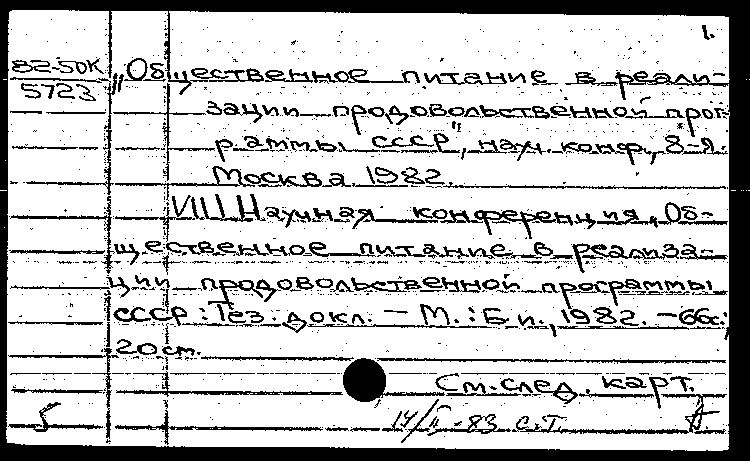 1.
82-50К
5723
„Общественное питание в реали-
зации продовольственной прог-
раммы СССР", науч. конф., 8-я.
Москва. 1982.
VIII Научная конференция „Об-
щественное питание в реализа-
ции продовольственной программы
СССР: Тез. докл. — М.: Б.и., 1982. — 66с.;
20см.
См. след. карт.
5 14/II-83 С.Т.